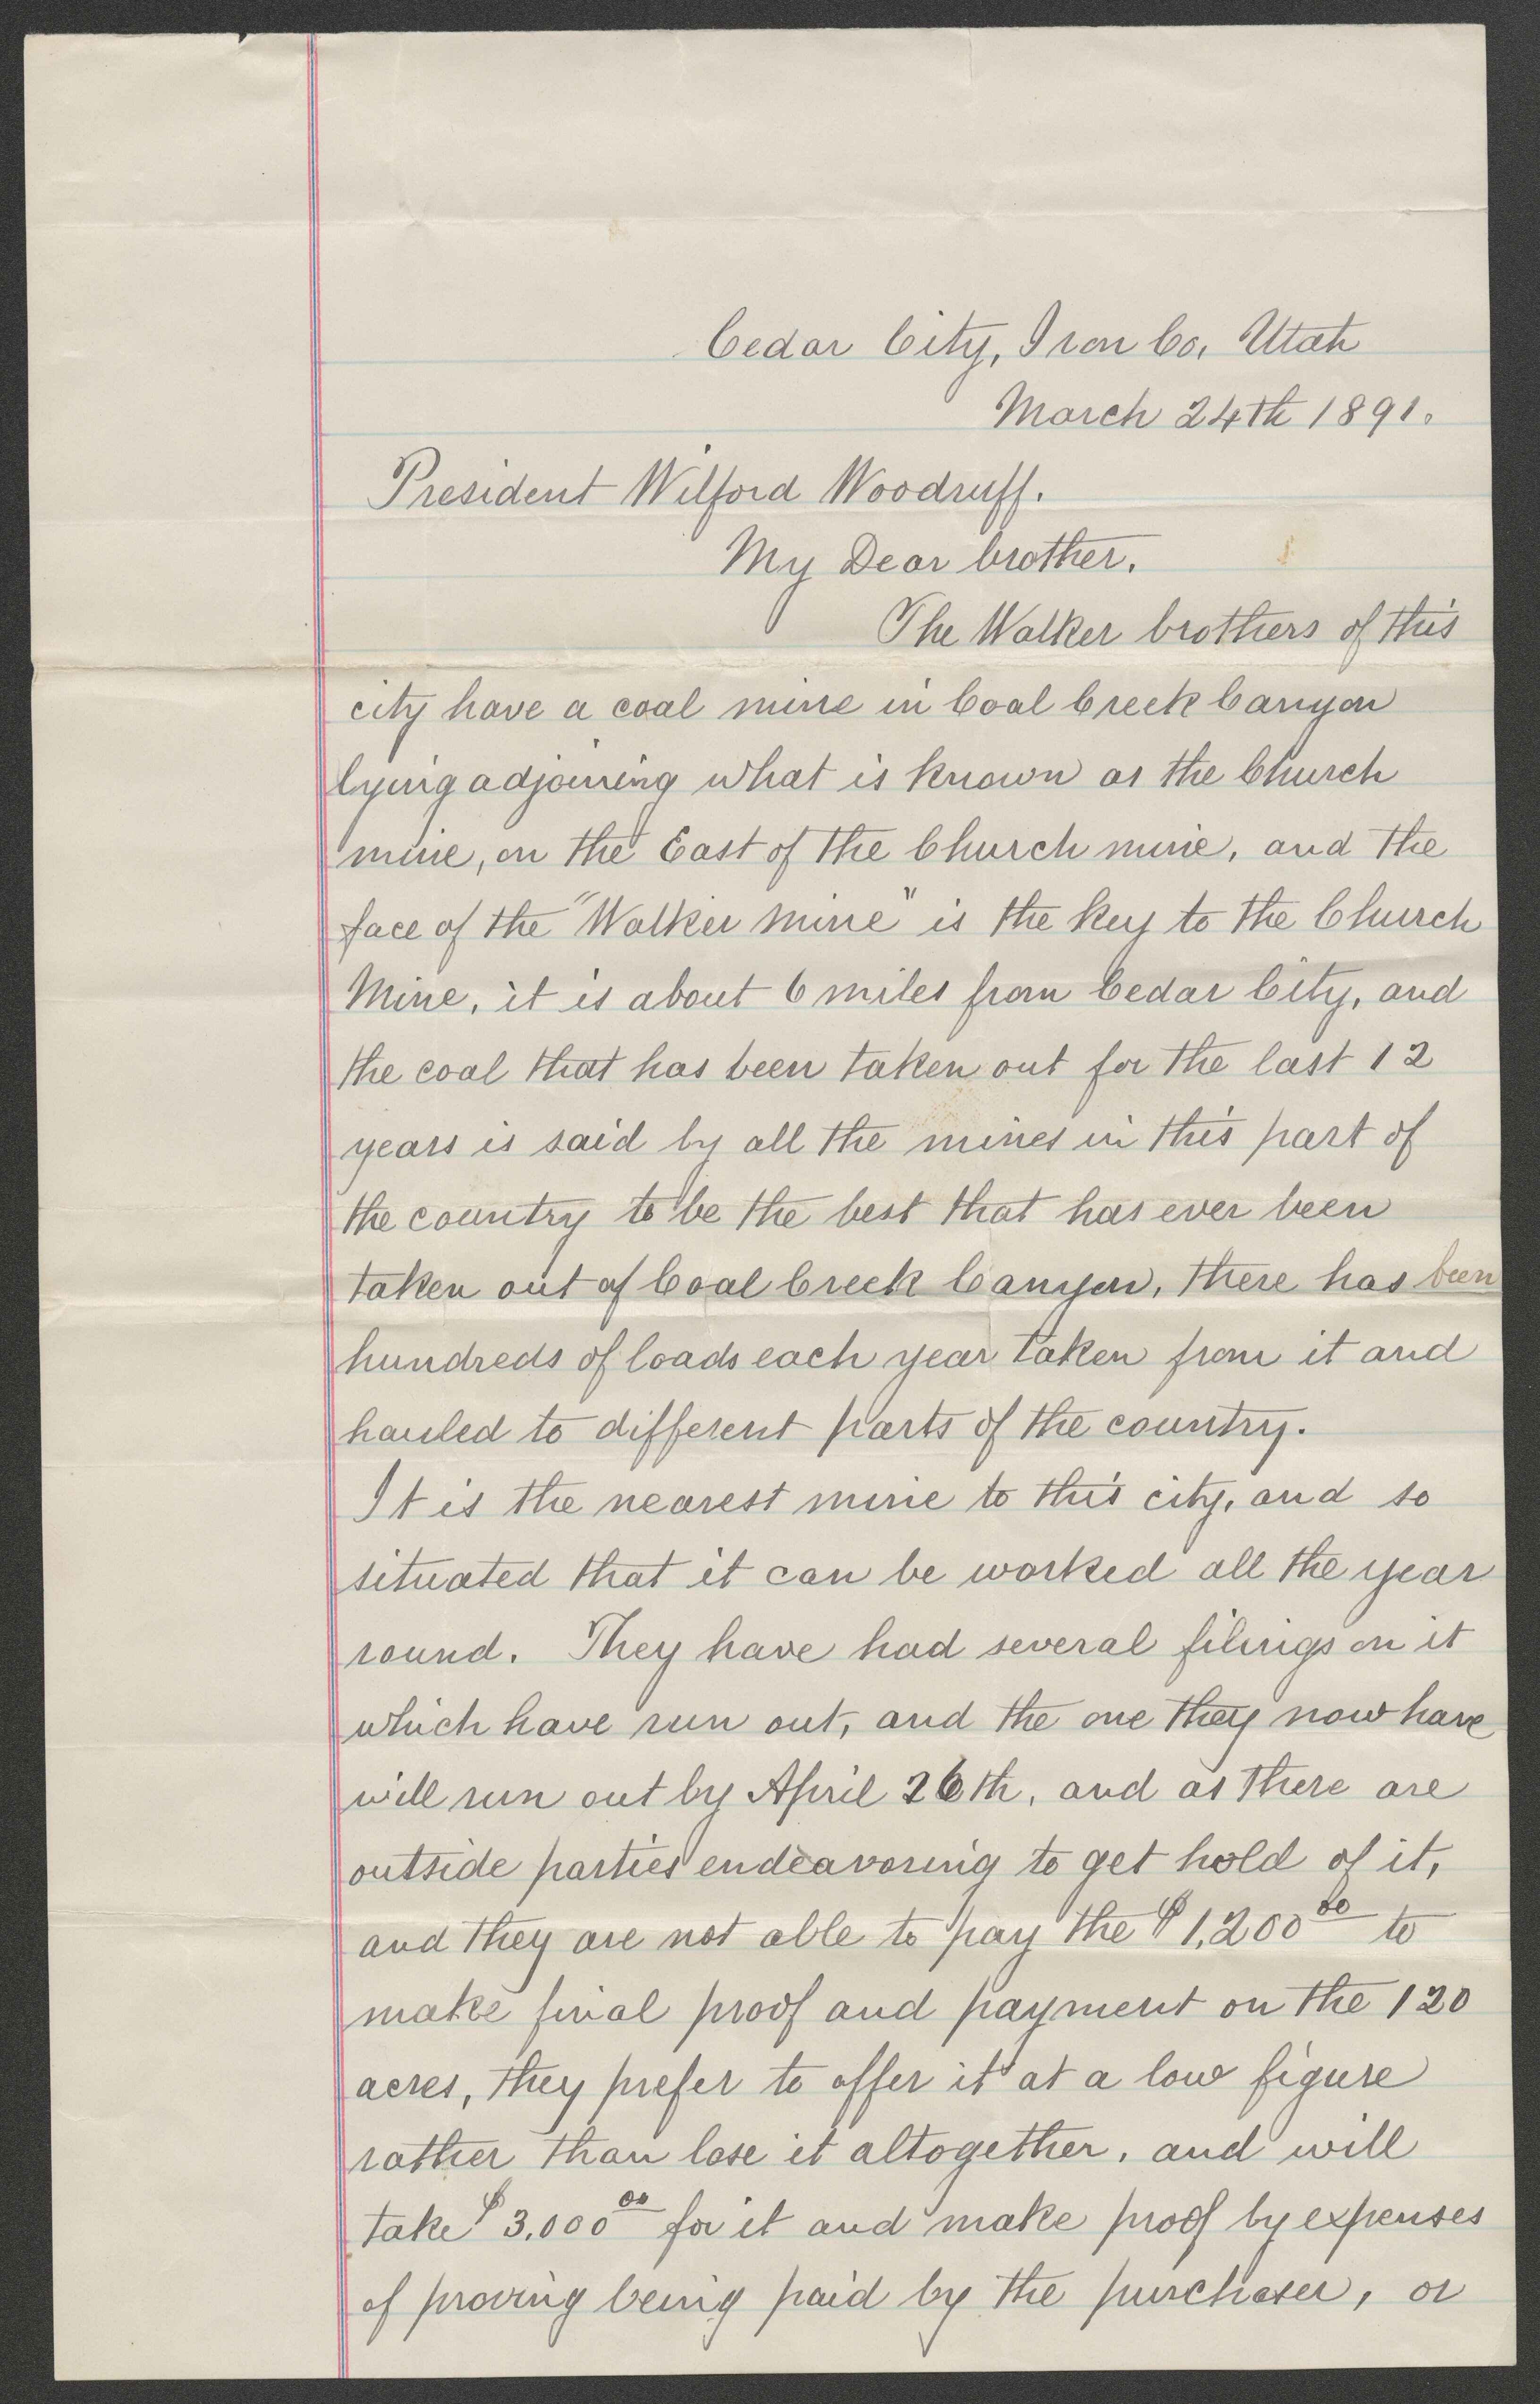 Cedar City, Iron Co, Utah
March 24th 1891.
President Wilford Woodruff.
My Dear brother,
The Walker brothers of this
city have a coal mine in Coal Creek Canyon
lying adjoining what is known as the Church
mine, on the East of the Church mine, and the
face of the "Walker Mine" is the key to the Church
Mine, it is about 6 miles from Cedar City, and
the coal that has been taken out for the last 12
years is said by all the mines in this part of
the country to be the best that has ever been
taken out of Coal Creek Canyon, there has been
hundreds of loads each year taken from it and
hauled to different parts of the country.
It is the nearest mine to this city, and so
situated that it can be worked all the year
round. They have had several filings on it
which have run out, and the one they now have
will run out by April 26th, and as there are
outside parties endeavoring to get hold of it,
and they are not able to pay the $1,200 00 to
make final proof and payment on the 120
acres, they prefer to offer it at a low figure
rather than lose it altogether, and will
take $3,000 00 for it and make proof by expenses
of proving being paid by the purchaser, or